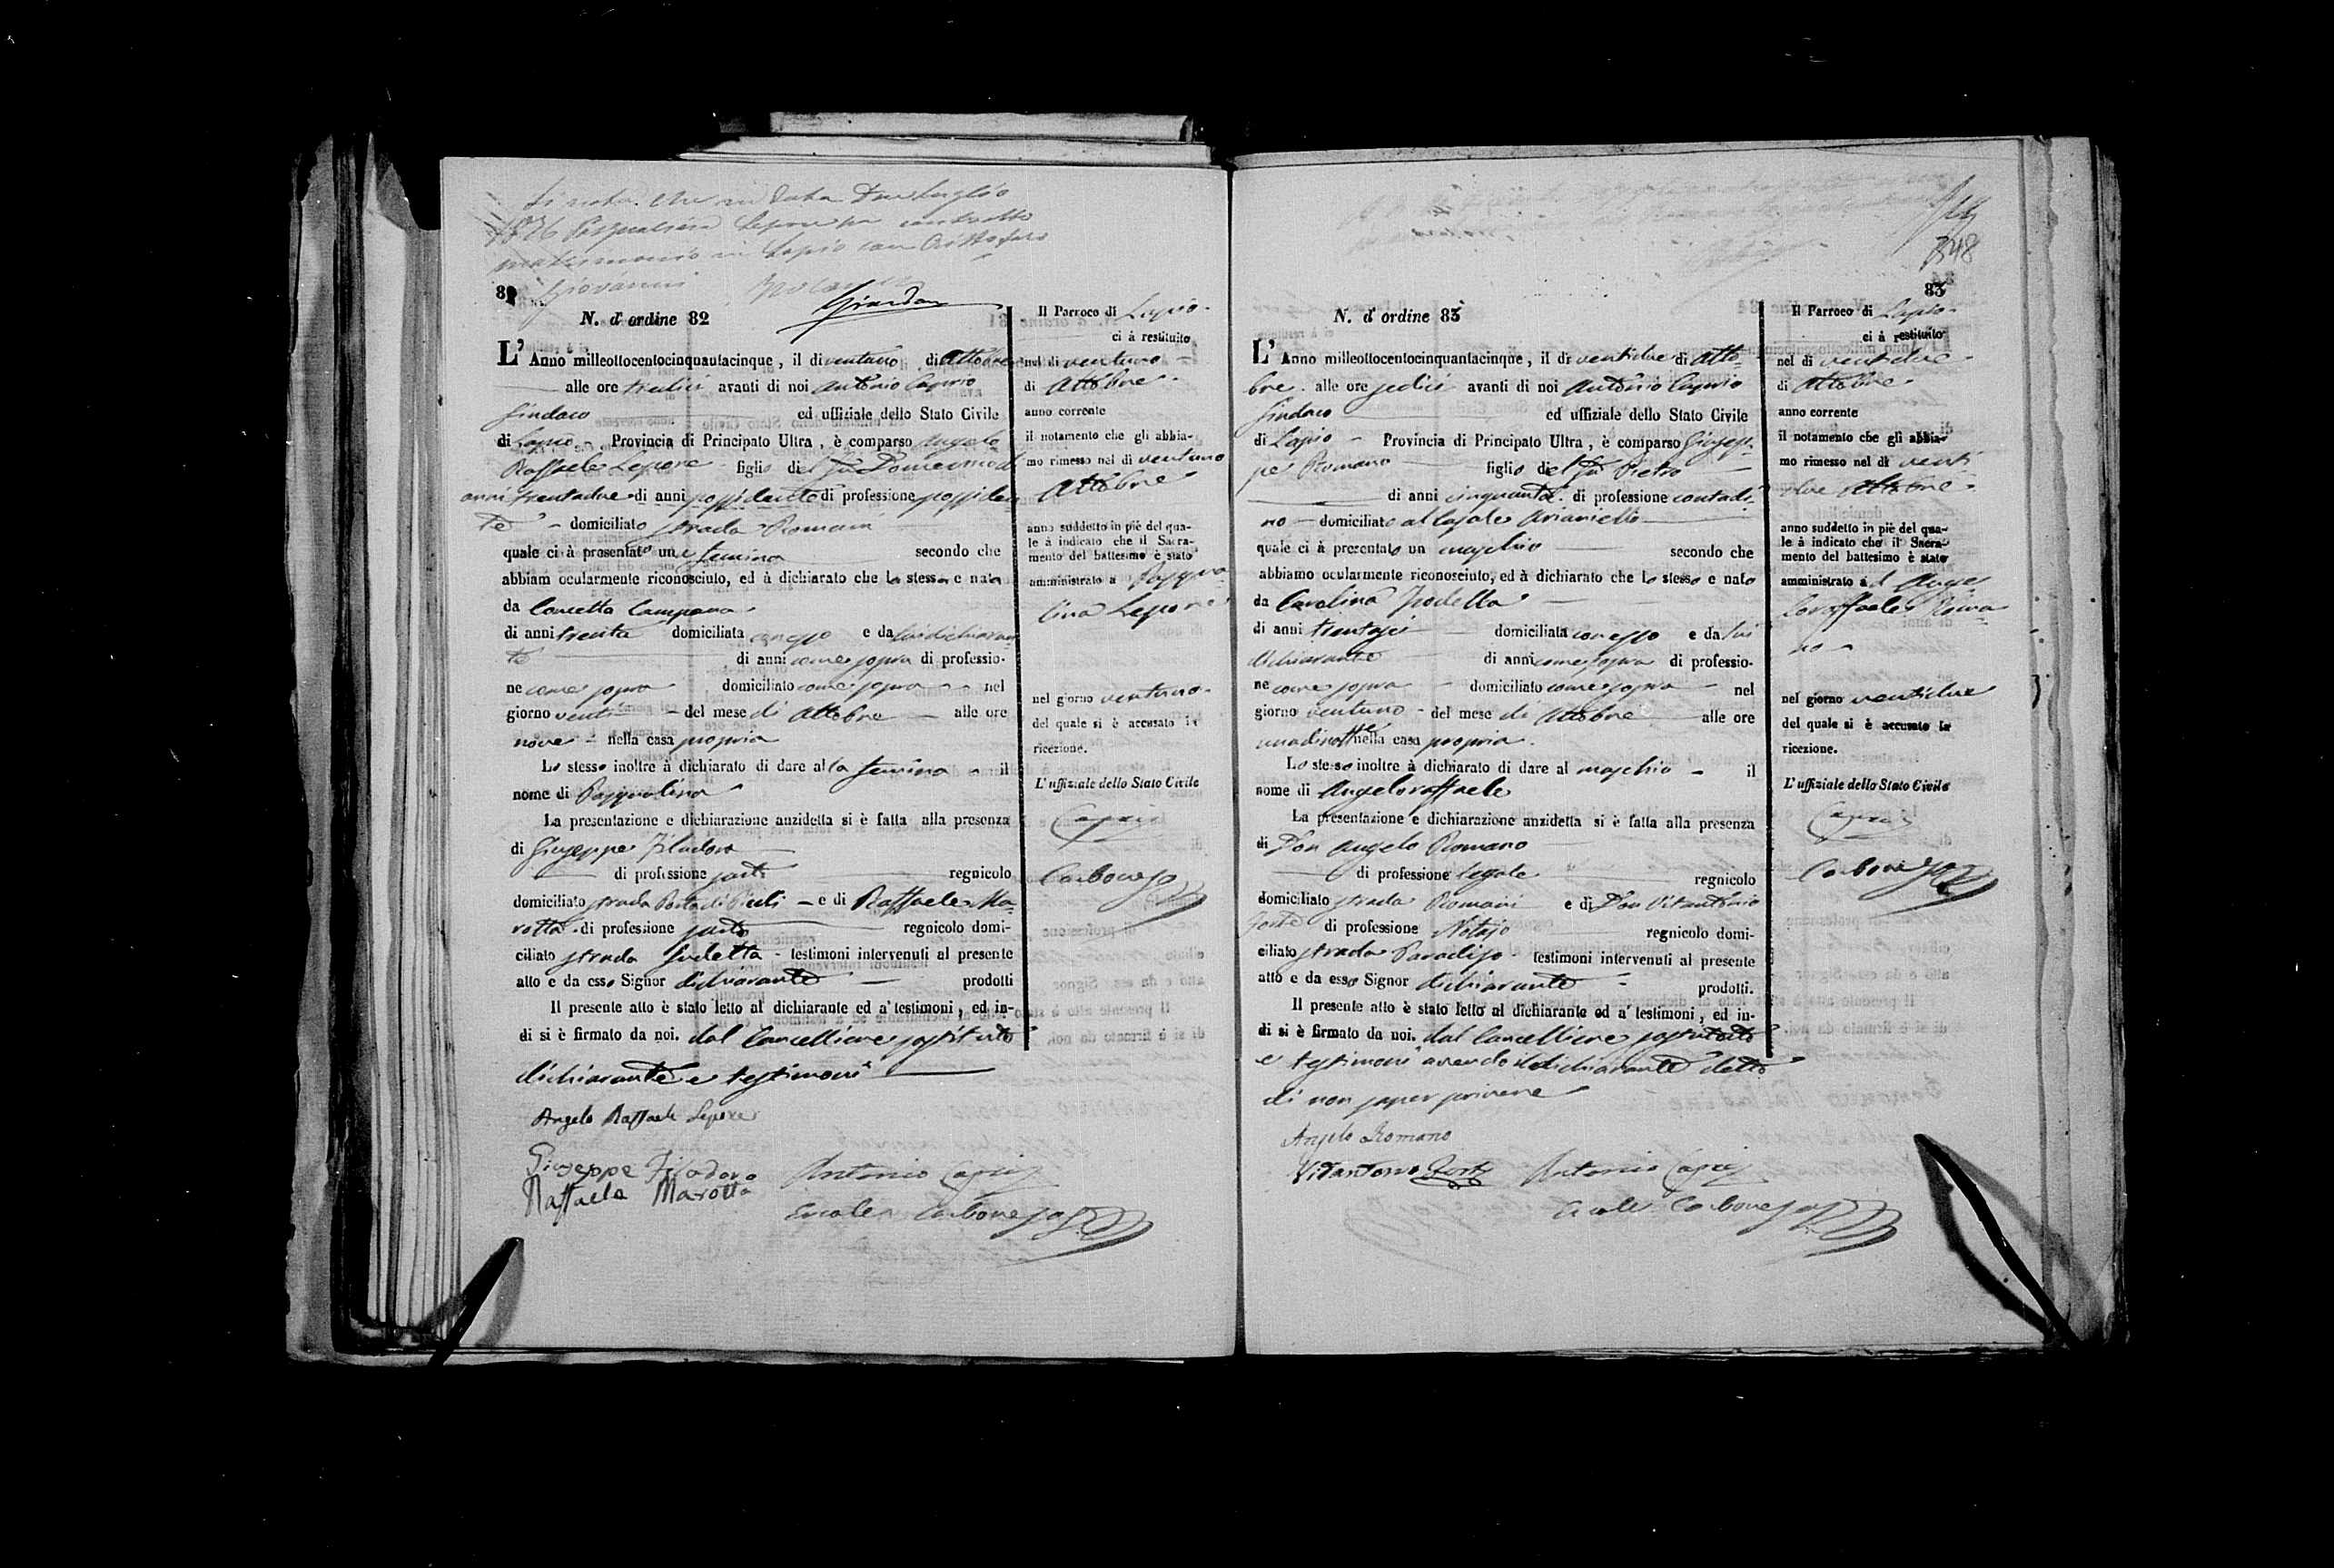 Si nota che in data Due Luglio
1876 Pasqualina Lepore ha contratto
matrimonio in Lapio con Cristofaro
Giovanni
82
N. d' ordine 82
L' Anno millottocentocinquantacinque, il di ventuno di Ottobre
alle ore tredici avanti di noi Antonio Caprio
Sindaco ed uffiziale dello Stato Civile
di Lapio - Provincia di Principato Ultra, è comparso Angelo
Raffaele Lepore figlio del fu Domenico di
anni trentadue di anni possidente di professione possiden
te - domiciliato strada Romani
quale ci à presentato una femina secondo che
abbiam ocularmente riconosciuto, ed à dichiarato che la stessa e nata
da Concetta Campana
di anni trenta domiciliata con esso e da lui dichiaran
te di anni come sopra di professio-
ne come sopra domiciliato come sopra - nel
giorno venti - del mese di Ottobre - alle ore
nove - nella casa propria
Lo stesso inoltre à dichiarato di dare alla femina - il
nome di Pasqualina
La presentazione e dichiarazione anzidetta si è fatta alla presenza
di Giuseppe Filadoro
di professione sarto regnicolo
domiciliato strada Porta di - e di Raffaele Ma-
rotta di professione sarto regnicolo domi-
ciliato strada sudetta - testimoni intervenuti al presente
atto e da esso Signor dichiarante - prodotti
Il presente atto è stato letto al dichiarante ed a' testimoni, ed in-
di si è firmato da noi. dal Cancelliere sostituto
dichiarante e testimoni
Angelo Raffaele Lepore
Giuseppe Filadoro Antonio Caprio
Raffaele Marotta
Ercole Carbone
Il Parroco di Lapio
ci à restituito
nel di ventuno
di Ottobre
anno corrente
il notamento che gli abbia-
mo rimesso nel di ventuno
Ottobre
anno suddetto in piè del qua-
le à indicato che il Sacra-
mento del battesimo è stato
amministrato a Pasqua
lina Lepore
nel giorno ventuno
del quale si è accusato la
ricezione.
L'uffiziale dello Stato Civile
Caprio
Carbone
348
83
N. d' ordine 83
L' Anno millottocentocinquantacinque, il di ventidue di Otto-
bre alle ore sedici avanti di noi Antonio Caprio
Sindaco ed uffiziale dello Stato Civile
di Lapio - Provincia di Principato Ultra, è comparso Giusep-
pe Romano figlio del fu Pietro
di anni cinquanta di professione contadi-
no - domiciliato al Casale Arianiello
quale ci à presentato un maschio secondo che
abbiamo ocularmente riconosciuto, ed à dichiarato che lo stesso e nato
da Carolina Trodella
di anni trentasei domiciliata con esso e da lui
dichiarante di anni come sopra di professio-
ne come sopra - domiciliato come sopra - nel
giorno ventuno - del mese di Ottobre alle ore
una di notte nella casa propria.
Lo stesso inoltre à dichiarato di dare al maschio - il
nome di Angeloraffaele
La presentazione e dichiarazione anzidetta si è fatta alla presenza
di Don Angelo Romano
di professione legale regnicolo
domiciliato strada Romani e di Don Vitantonio
Forte di professione Notajo regnicolo domi-
ciliato strada Paradiso - testimoni intervenuti al presente
atto e da esso Signor dichiarante - prodotti.
Il presente atto è stato letto al dichiarante ed a' testimoni, ed in-
di si è firmato da noi. dal Cancelliere sostituto
e testimoni avendo il dichiarante detto
di non saper scrivere
Angelo Romano
Vitantonio Forte Antonio Caprio
Ercole Carbone
Il Parroco di Lapio
ci à restituito
nel di ventidue
di Ottobre
anno corrente
il notamento che gli abbia-
mo rimesso nel di venti
due Ottobre
anno suddetto in piè del qua-
le à indicato che il Sacra-
mento del battesimo è stato
amministrato ad Ange
loraffaele Roma
no
nel giorno ventidue
del quale si è accusato la
ricezione.
L'uffiziale dello Stato Civile
Caprio
Carbone